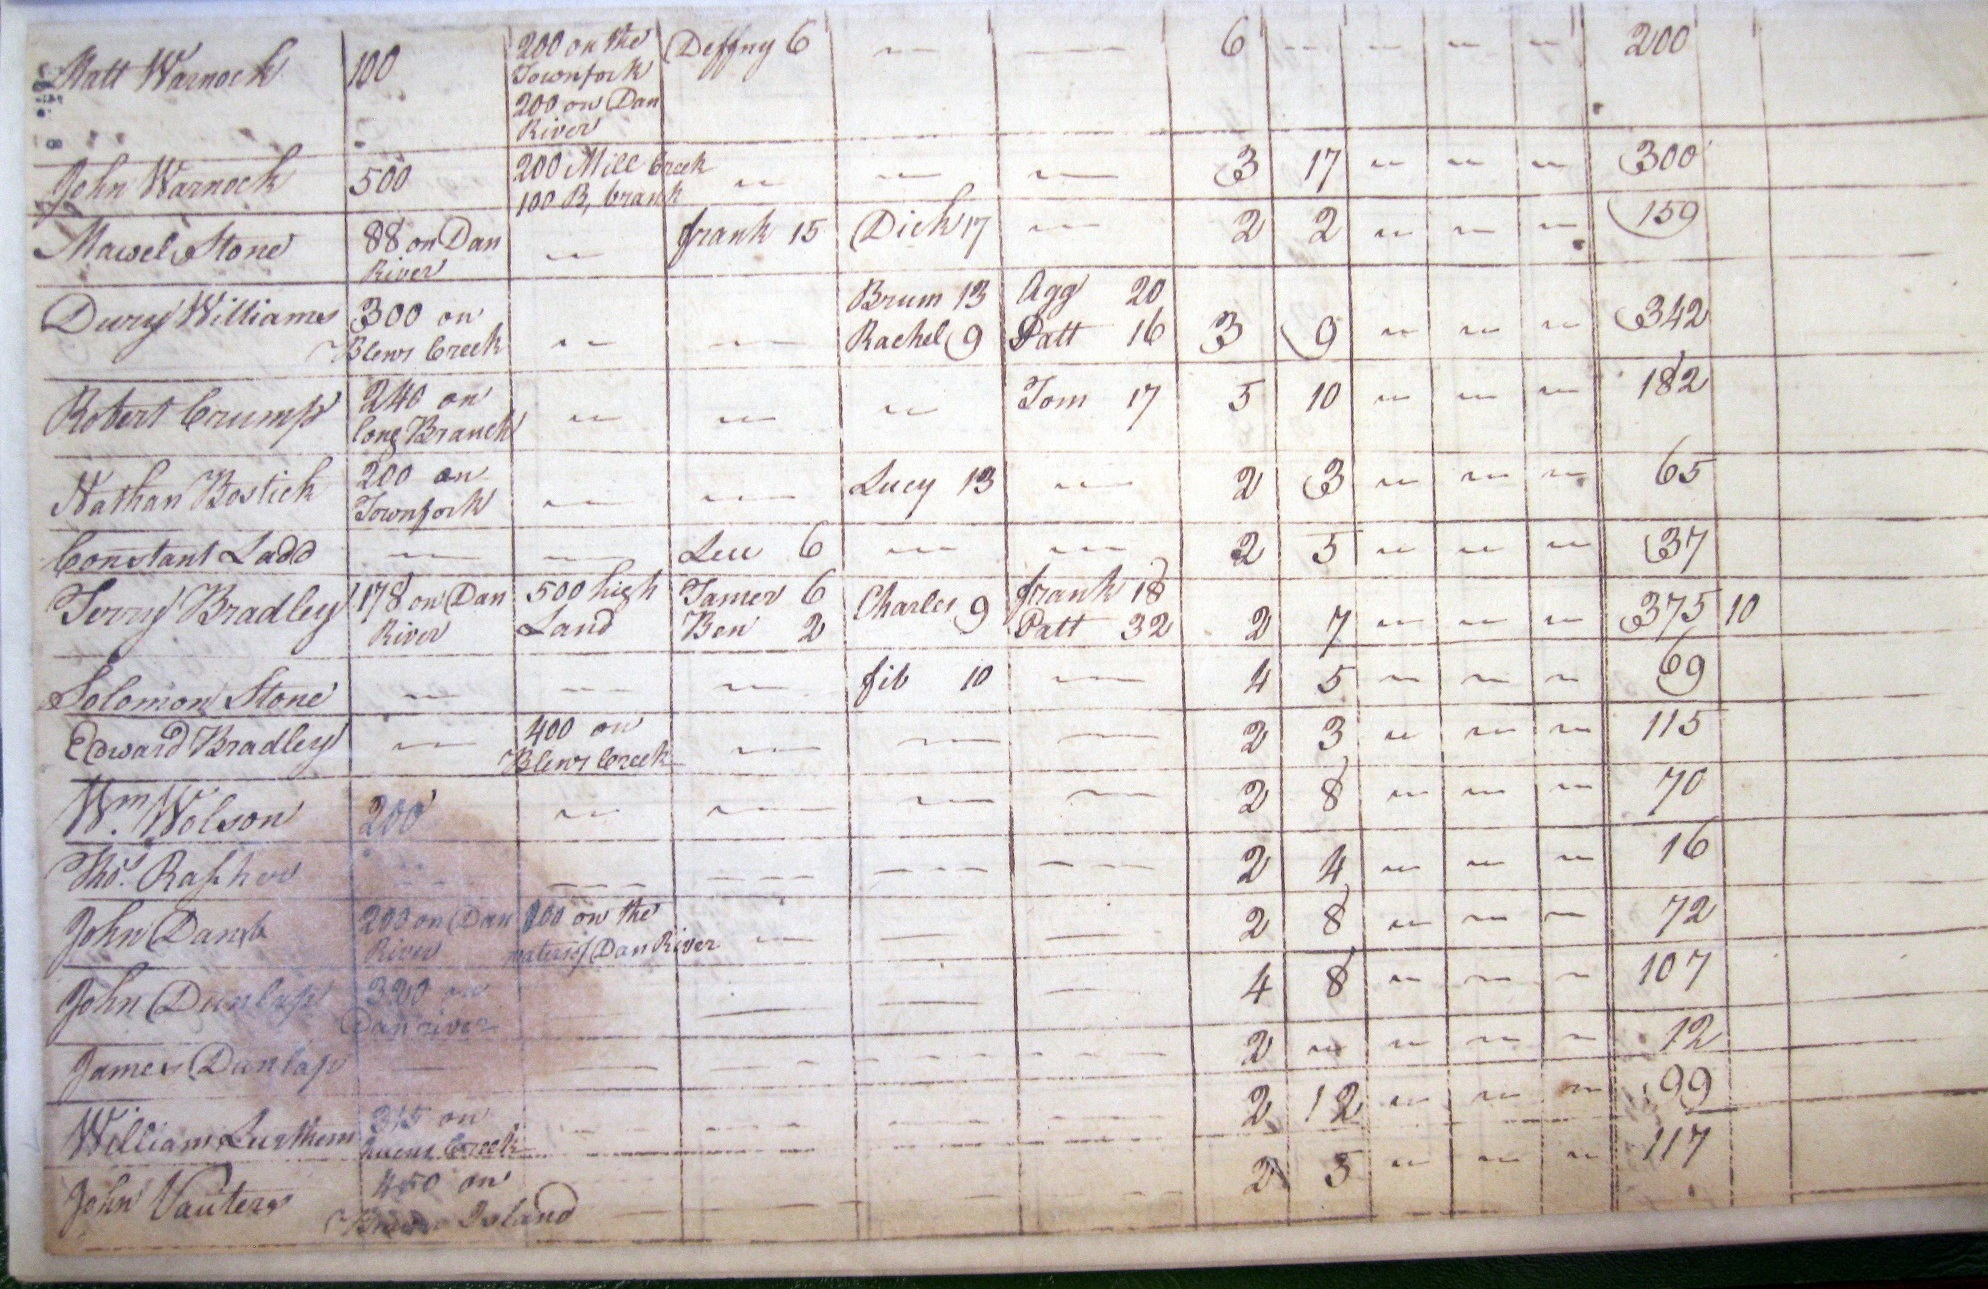 Matt Warnock 100 200 on the Deffny 6 — — 6 — — — — 200
Townfork
200 on Dan
River
John Warnock 500 200 Mill Creek — — — 3 17 — — — 300
100 B, branh
Mawel Stone 88 on Dan — frank 15 Dick 17 — 2 2 — — — 159
River
Brum 13 Agg 20
Dury Williams 300 on — — Rachel 9 Patt 16 3 9 — — — 342
Blews Creek
Robert Crump 240 on — — — Tom 17 5 10 — — — 182
long Branch
Nathan Bostick 200 on — — Lucy 13 — 2 3 — — — 65
Townfork
Constant Ladd — — Leu 6 — — 2 5 — — — 37
Terry Bradley 178 on Dan 500 high Tamer 6 Charles 9 frank 18 2 7 — — — 375 10
River Land Ben 2 Patt 32
Solomon Stone — — — fib 10 — 4 5 — — — 69
Edward Bradley — 400 on — — — 2 3 — — — 115
Blews Creek
Wm. Wolson 200 — — — — 2 8 — — — 70
Thos. — — — — — 2 4 — — — 16
John 200 on Dan 100 on the — — — 2 8 — — — 72
River waters of Dan River
John Dunlap 320 on — — — — 4 8 — — — 107
Dan river
James Dunlap — — — — — 2 — — — — 12
William 315 on — — — — 2 12 — — — 99
Creek
John Vauters 450 on — — — — 2 5 — — — 117
Island